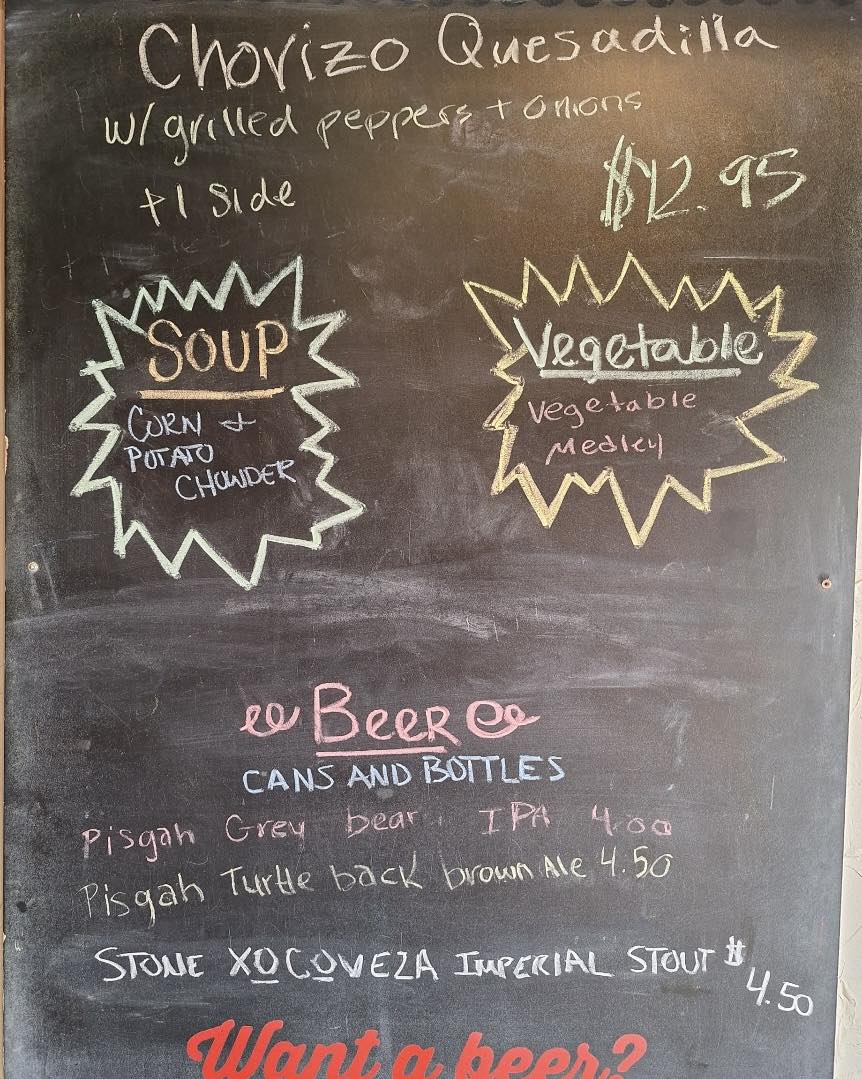 Chorizo Quesadilla
w/ grilled peppers + onions
+ 1 Side
$12.95
SOUP
CORN +
POTATO
CHOWDER
Vegetable
Vegetable
Medley
BEER
CANS AND BOTTLES
Pisgah Grey bear IPA 4.00
Pisgah Turtle back brown Ale 4.50
STONE XOCOVEZA IMPERIAL STOUT $4.50
Want a beer?